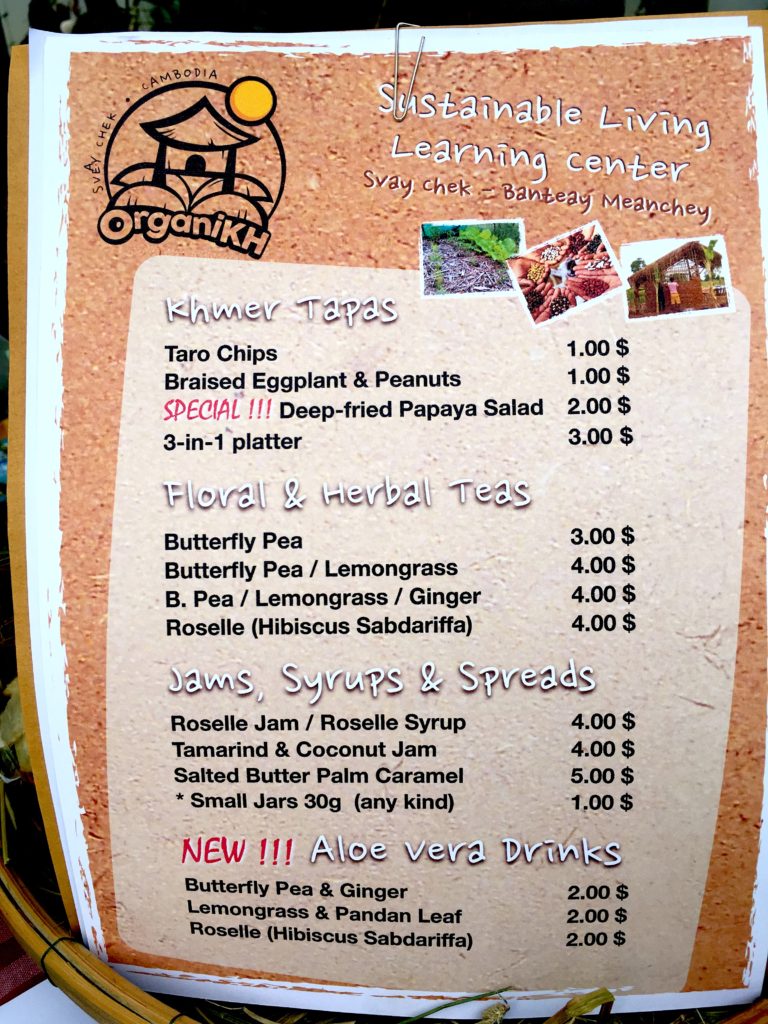 SVAY CHEK • CAMBODIA
OrganiKH
Sustainable Living
Learning Center
Svay Chek - Banteay Meanchey
Khmer Tapas
Taro Chips 1.00 $
Braised Eggplant & Peanuts 1.00 $
SPECIAL !!! Deep-fried Papaya Salad 2.00 $
3-in-1 platter 3.00 $
Floral & Herbal Teas
Butterfly Pea 3.00 $
Butterfly Pea / Lemongrass 4.00 $
B. Pea / Lemongrass / Ginger 4.00 $
Roselle (Hibiscus Sabdariffa) 4.00 $
Jams, Syrups & Spreads
Roselle Jam / Roselle Syrup 4.00 $
Tamarind & Coconut Jam 4.00 $
Salted Butter Palm Caramel 5.00 $
* Small Jars 30g (any kind) 1.00 $
NEW !!! Aloe Vera Drinks
Butterfly Pea & Ginger 2.00 $
Lemongrass & Pandan Leaf 2.00 $
Roselle (Hibiscus Sabdariffa) 2.00 $